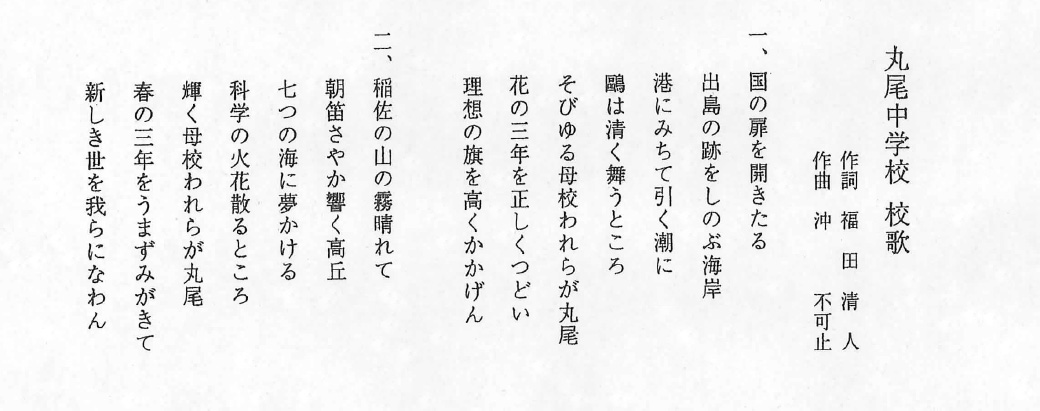 丸尾中学校 校歌
作詞 福田清人
作曲 沖不可止
一、国の扉を開きたる
出島の跡をしのぶ海岸
港にみちて引く潮に
鷗は清く舞うところ
そびゆる母校われらが丸尾
花の三年を正しくつどい
理想の旗を高くかかげん
二、稲佐の山の霧晴れて
朝笛さやか響く高丘
七つの海に夢かける
科学の火花散るところ
輝く母校われらが丸尾
春の三年をうまずみがきて
新しき世を我らになわん